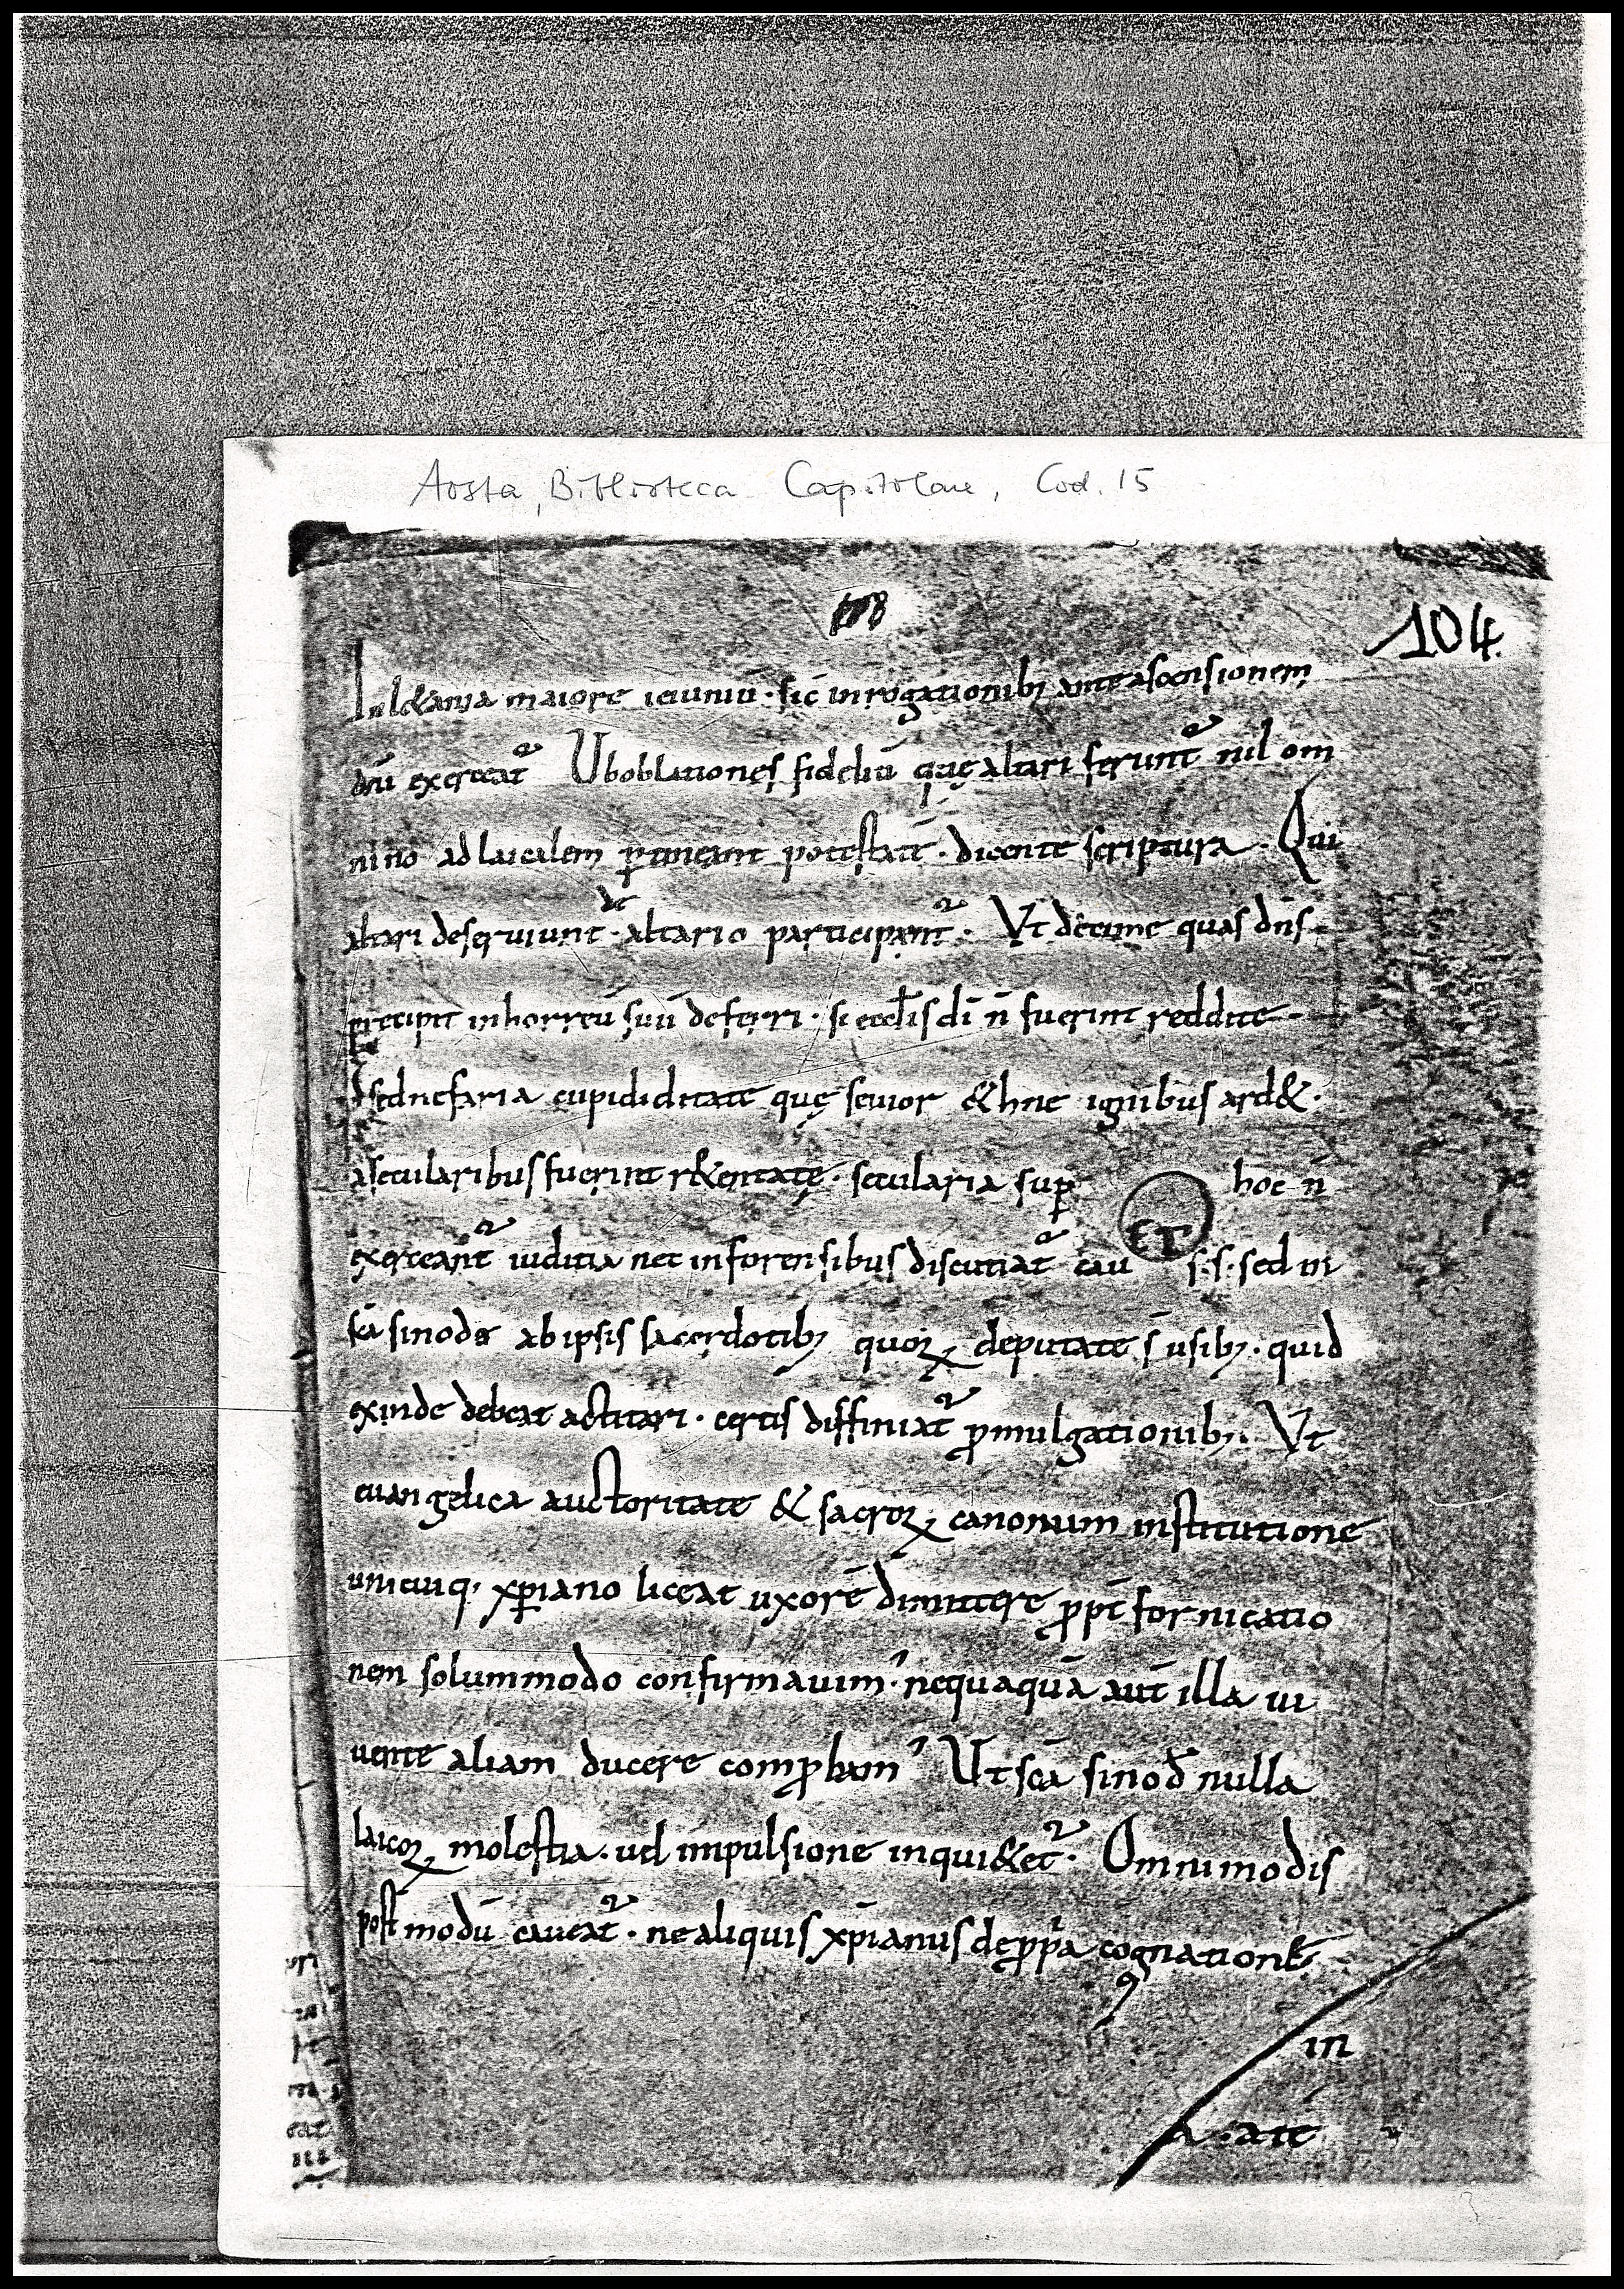 Aosta, Biblioteca Capitolare, Cod. 15
104
In l&ania maiore ieiuniū · sic̄ in rogationibꝫ ante ascensionem
dn̄i exerceat̄ Ub oblationes fideliū quę altari ferunt̄ nil om
nino ad laicalem ꝑtineant potestatē · dicente scriptura · Qui
altari deserviunt · de altario participant̄ · Vt decime quas dn̄s
precipit in horreū suū deferri · si eccl̄is dī n̄ fuerint reddite
sed nefaria cupididitate quę sevior &hne ignibus ard& ·
a secularibus fuerint r&entatę · secularia suꝑ hoc n̄
exerceant̄ iuditia nec in forensibus discutiat̄ cau s · s · sed in
sc̄a sinodo ab ipsis sacerdotibꝫ quoꝝ deputate s̄ usibꝫ · quid
exinde debeat actitari · certis diffiniat̄ ꝓmulgationibꝫ · Vt
euangelica auctoritate & sacroꝝ canonum institutione
unicuiq · xp̄iano liceat uxorē dimittere ꝓpt̄ fornicatio
nem solummodo confirmauim' · nequaquā aut̄ illa ui
uente aliam ducere comꝓbam' Ut sc̄a sinod̄ nulla
laicoꝝ molestia · uel impulsione inqui&et̄ · Omnimodis
post modū caueat̄ · ne aliquis xp̄ianus de ꝓp̄a cognatione
in
a · ait